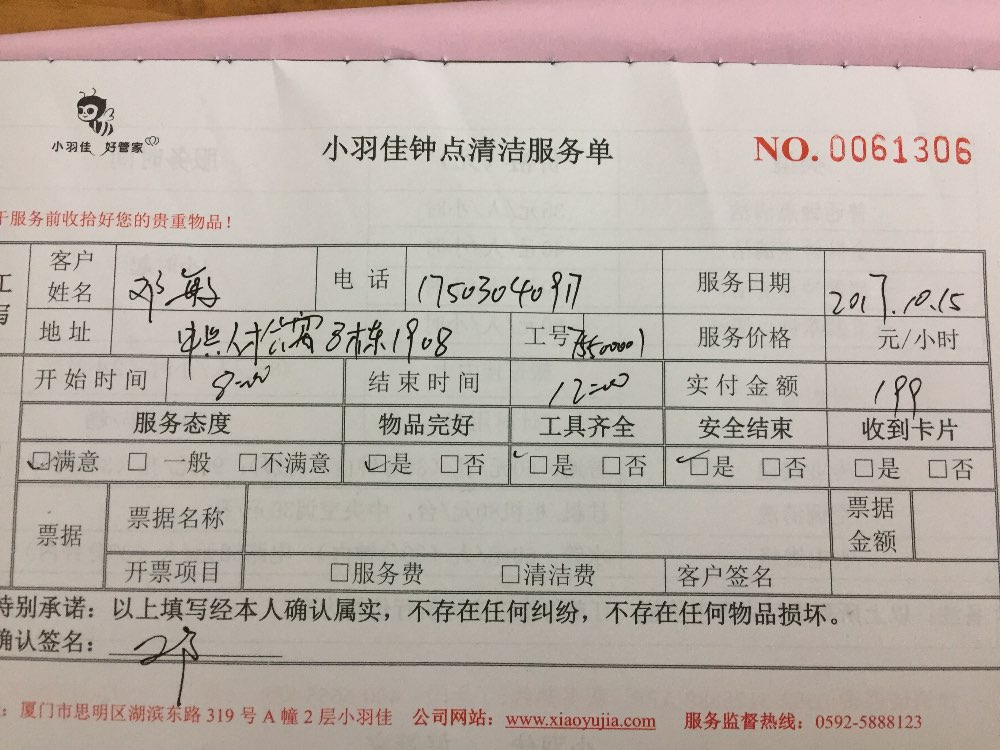 小羽佳 好管家
小羽佳钟点清洁服务单
NO. 0061306
于服务前收拾好您的贵重物品！
客户姓名 邓 电话 17503040917 服务日期 2017.10.15
地址 3栋1908 工号 服务价格 元/小时
开始时间 8:00 结束时间 12:00 实付金额 199
服务态度 物品完好 工具齐全 安全结束 收到卡片
☑满意 □一般 □不满意 ☑是 □否 ☑是 □否 ☑是 □否 □是 □否
票据 票据名称 票据金额
开票项目 □服务费 □清洁费 客户签名
特别承诺：以上填写经本人确认属实，不存在任何纠纷，不存在任何物品损坏。
确认签名： 邓
：厦门市思明区湖滨东路 319 号 A 幢 2 层小羽佳 公司网站：www.xiaoyujia.com 服务监督热线：0592-5888123